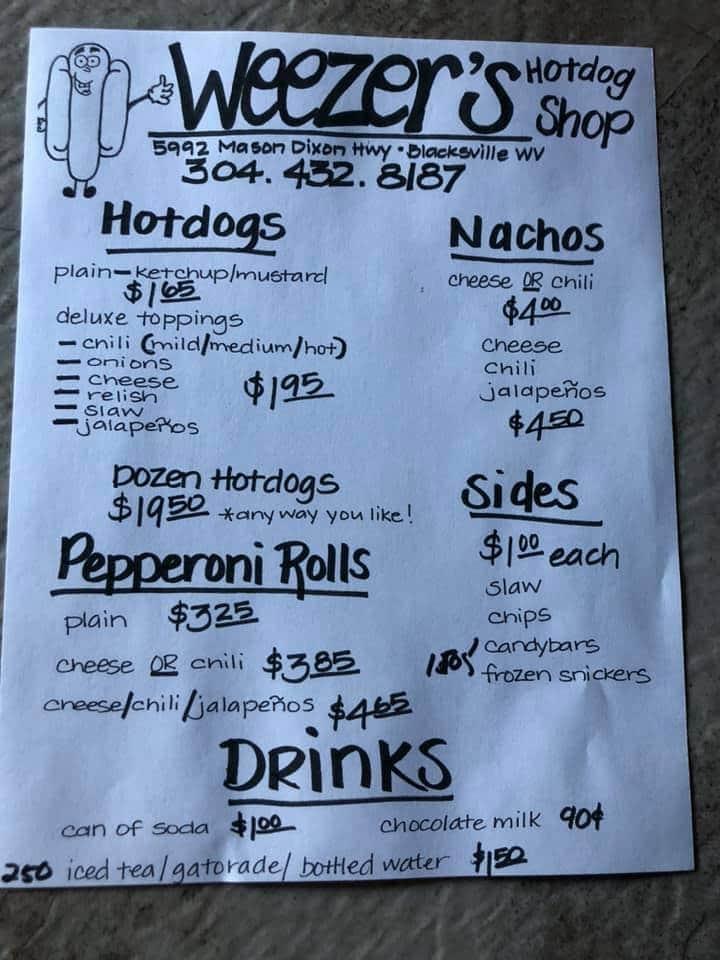 Weezer's Hotdog Shop
5992 Mason Dixon Hwy • Blacksville WV
304.432.8187
Hotdogs
plain - ketchup/mustard
$1.65
deluxe toppings
- chili (mild/medium/hot)
- onions
- cheese
- relish
- slaw
- jalapeños
$1.95
Dozen Hotdogs
$19.50 *any way you like!
Pepperoni Rolls
plain $3.25
cheese OR chili $3.85
cheese/chili/jalapeños $4.65
Nachos
cheese OR chili
$4.00
cheese
chili
jalapeños
$4.50
Sides
$1.00 each
slaw
chips
candybars
frozen snickers
DRINKS
can of soda $1.00
chocolate milk 90¢
250 iced tea/gatorade/bottled water $1.50